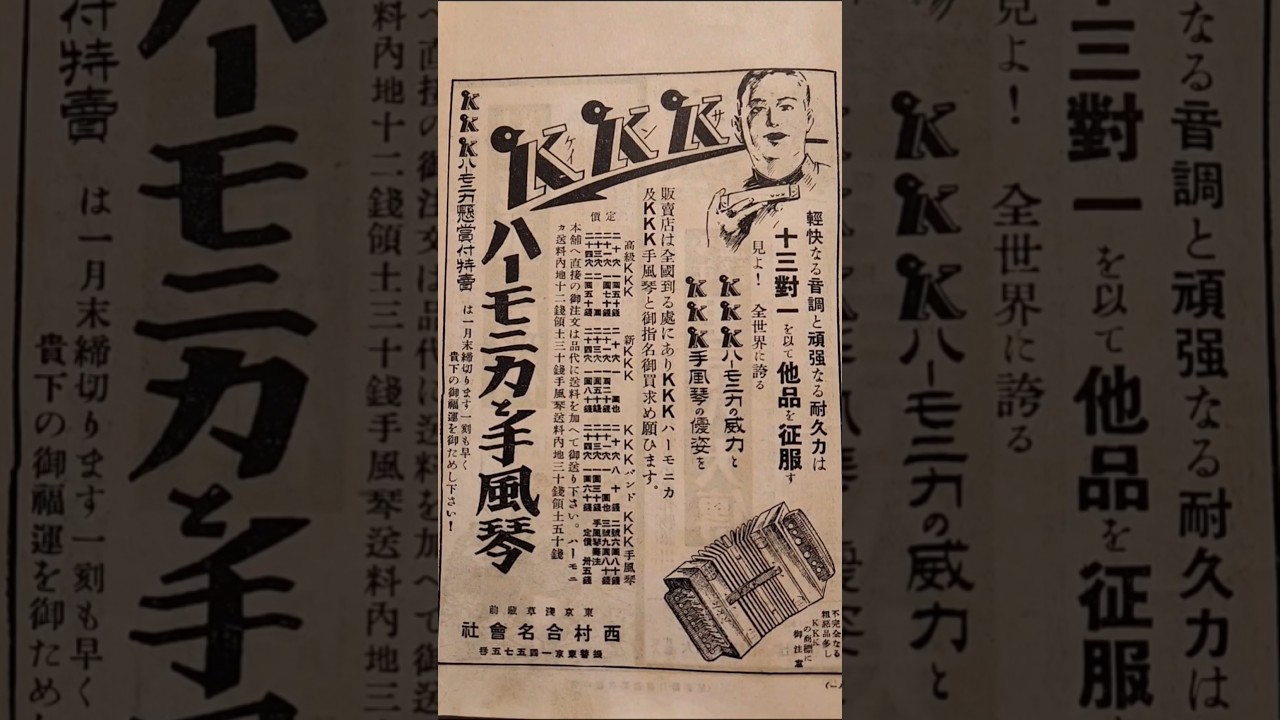 輕快なる音調と頑强なる耐久力は
十三對一を以て他品を征服す
見よ! 全世界に誇る
KKKハーモニカの威力と
KKK手風琴の優姿を
販賣店は全國到る處にありKKKハーモニカ
及KKK手風琴と御指名御買求め願ひます。
KKK
ケイ
ンサ
定價
高級KKK
新KKK
KKKバンド
KKK手風琴
本舗へ直接の御注文は品代に送料を加へて御送り下さい。ハーモニ
カ送料內地十二錢領土三十錢手風琴送料內地三十錢領土五十錢
ハーモニカと手風琴
KKKハーモニカ懸賞付特賣は一月末締切ります一刻も早く
貴下の御福運を御ためし下さい!
東京淺草藏前
西村合名會社
振替東京一四五七五番
不完全なる
粗惡品多し
KKK
の商標に
御注意